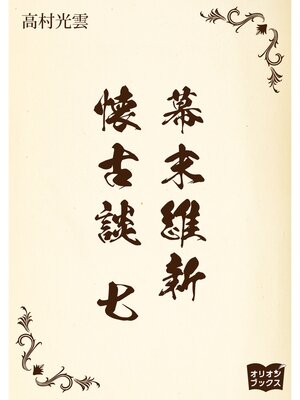 高村光雲
幕末維新
懐古談 七
オリオン
ブックス